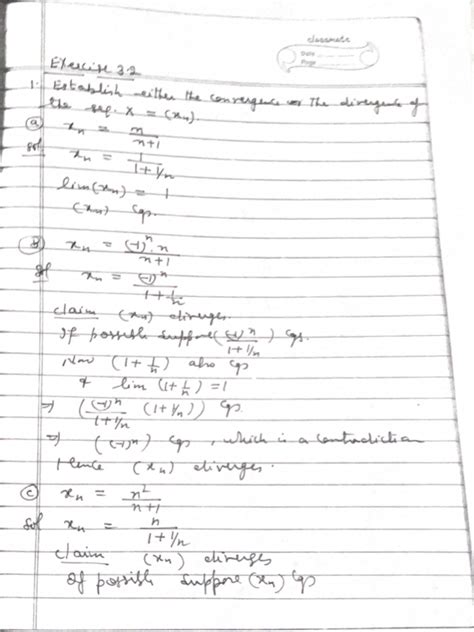 classmate
Date
Page
Exercise 3.2
1. Establish either the convergence or The divergence of
the seq. X = (xn).
(a) xn = n/(n+1)
Sol xn = 1/(1+1/n)
lim(xn) = 1
(xn) cgs.
(b) xn = (-1)^n . n/(n+1)
Sol xn = (-1)^n/(1+1/n)
claim (xn) diverges.
If possible suppose ((-1)^n/(1+1/n)) cgs.
Now (1+1/n) also cgs
& lim (1+1/n) = 1
⇒ ((-1)^n/(1+1/n) (1+1/n)) cgs.
⇒ ((-1)^n) cgs, which is a contradiction
Hence (xn) diverges.
(c) xn = n²/(n+1)
Sol xn = n/(1+1/n)
claim (xn) diverges
If possible suppose (xn) cgs